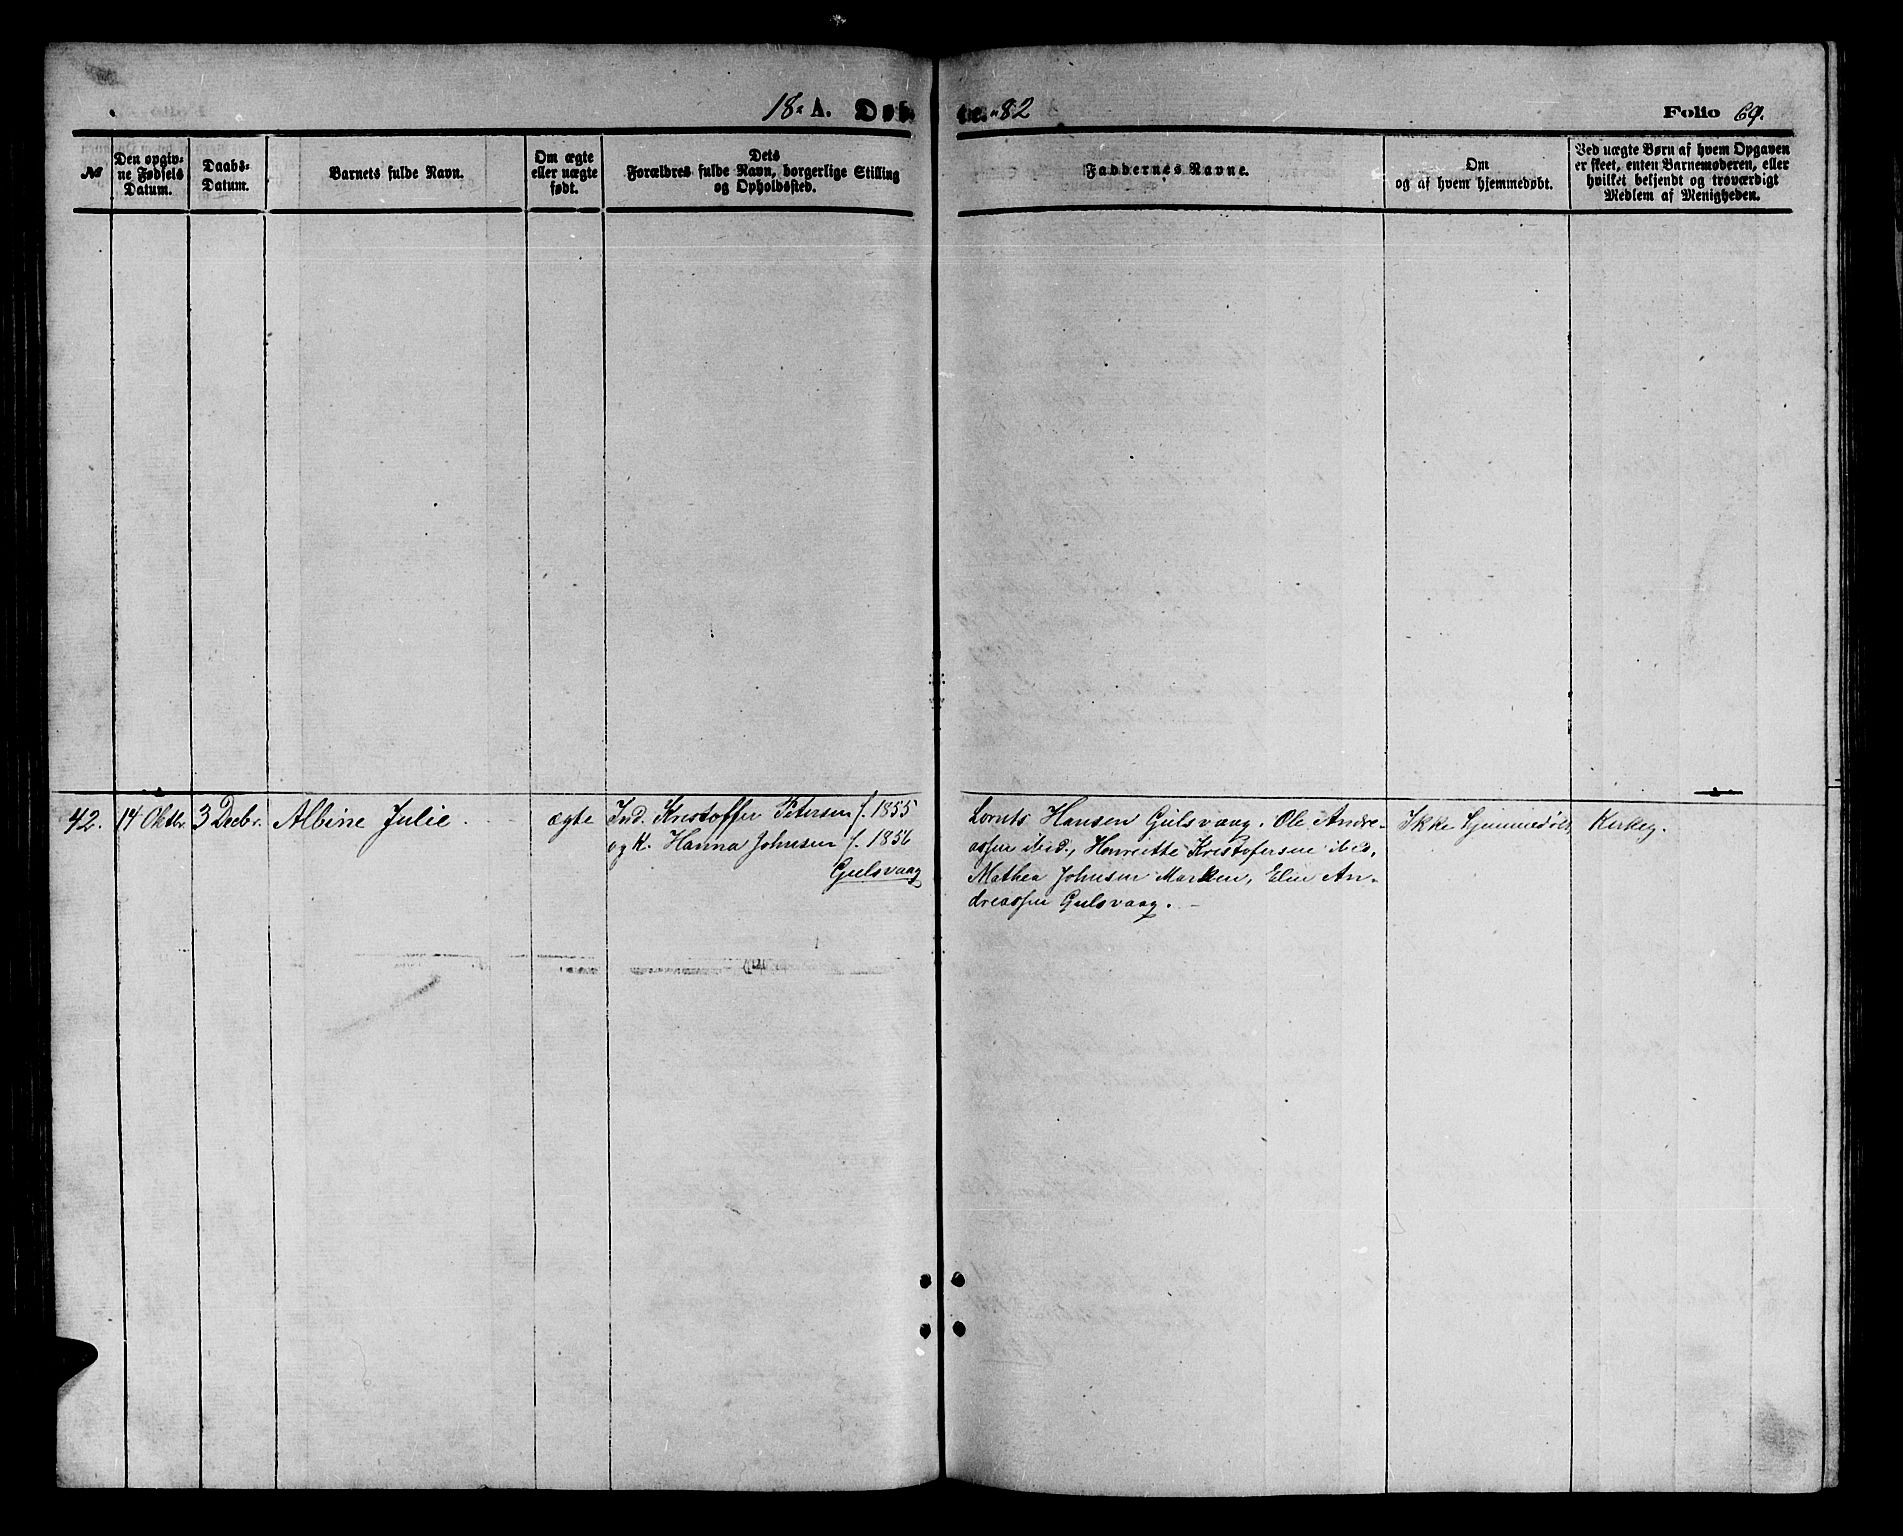 18 A. Døb-
te. 82
Folio 69.
No
Den opgiv-
ne Fødsels
Datum.
Daabs-
Datum.
Barnets fulde Navn.
Om ægte
eller uægte
født.
Dets
Forældres fulde Navn, borgerlige Stilling
og Opholdssted.
Faddernes Navne.
Om
og af hvem hjemmedøbt.
Ved uægte Børn af hvem Opgaven
er skeet, enten Barnemoderen, eller
hvilket bekjendt og troværdigt
Medlem af Menigheden.
42. 14 Oktbr. 3 Decbr. Albine Julie. ægte Ind. Kristoffer Petersen f. 1855
og K. Hanna Johnsen f. 1856
Gulsvaag
Lornts Hansen Gulsvaag. Ole Andre-
assen ibid., Henriette Kristofersen ibid.
Mathea Johnsen Marken, Elen An-
dreassen Gulsvaag.
Ikke hjemmedøbt
Kirkeg.